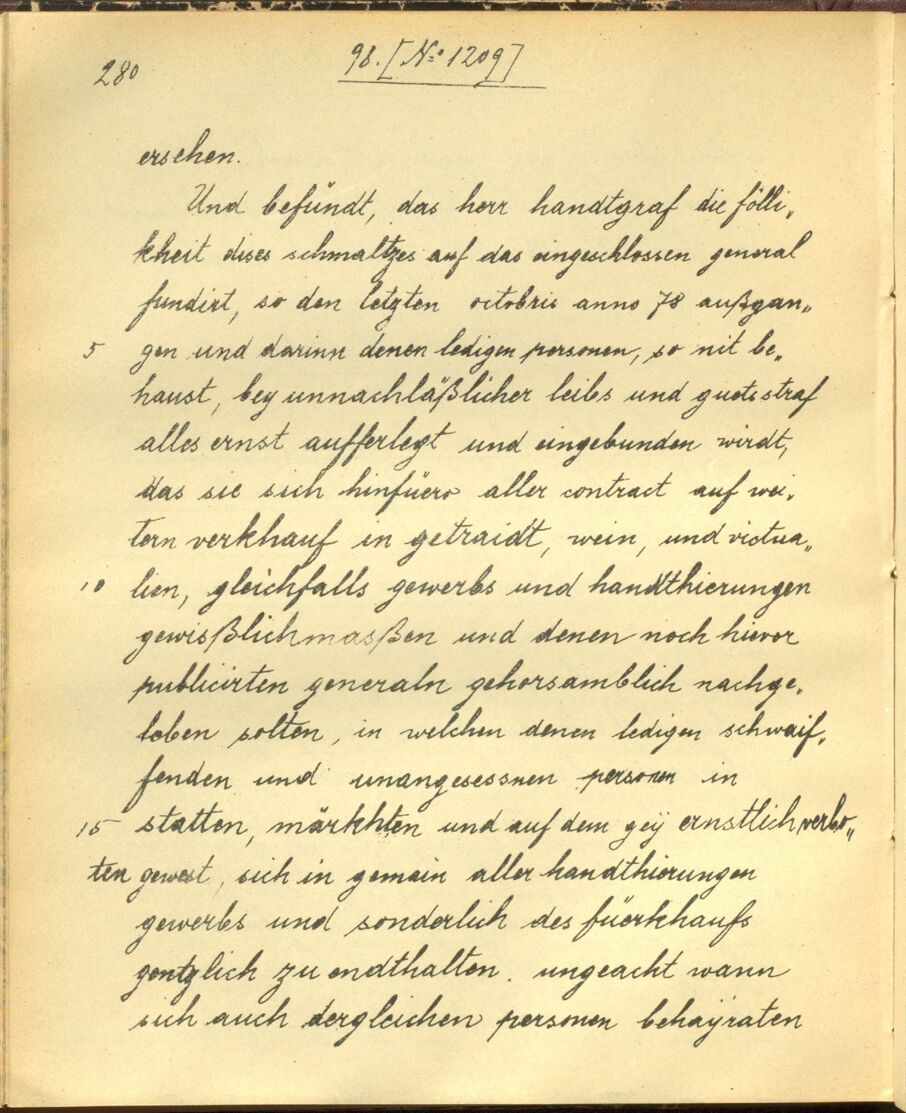 280
98. [No 1209]
ersehen.
Und befündt, das herr handtgraf die fölli„
kheit dises schmaltzes auf das eingeschlossen general
fundirt, so den letzten octobris anno 78 außgan„
5 gen und darinn denen ledigen personen, so nit be„
haust, bey unnachläßlicher leibs und guets straf
alles ernst aufferlegt und eingebunden wirdt,
das sie sich hinfüero aller contract auf wei„
tern verkhauf in getraidt, wein, und victua„
10 lien, gleichfalls gewerbs und handthierungen
gewißlichmaßen und denen noch hievor
publicirten generaln gehorsamblich nachge„
leben solten, in welchen denen ledigen schwaif„
fenden und unangesessnen personen in
15 statten, märkhten und auf dem geÿ ernstlich verbo„
ten gewest, sich in gemein aller handthierungen
gewerbs und sonderlich des füerkhaufs
gentzlich zu endthalten. ungeacht wann
sich auch dergleichen personen behaÿraten